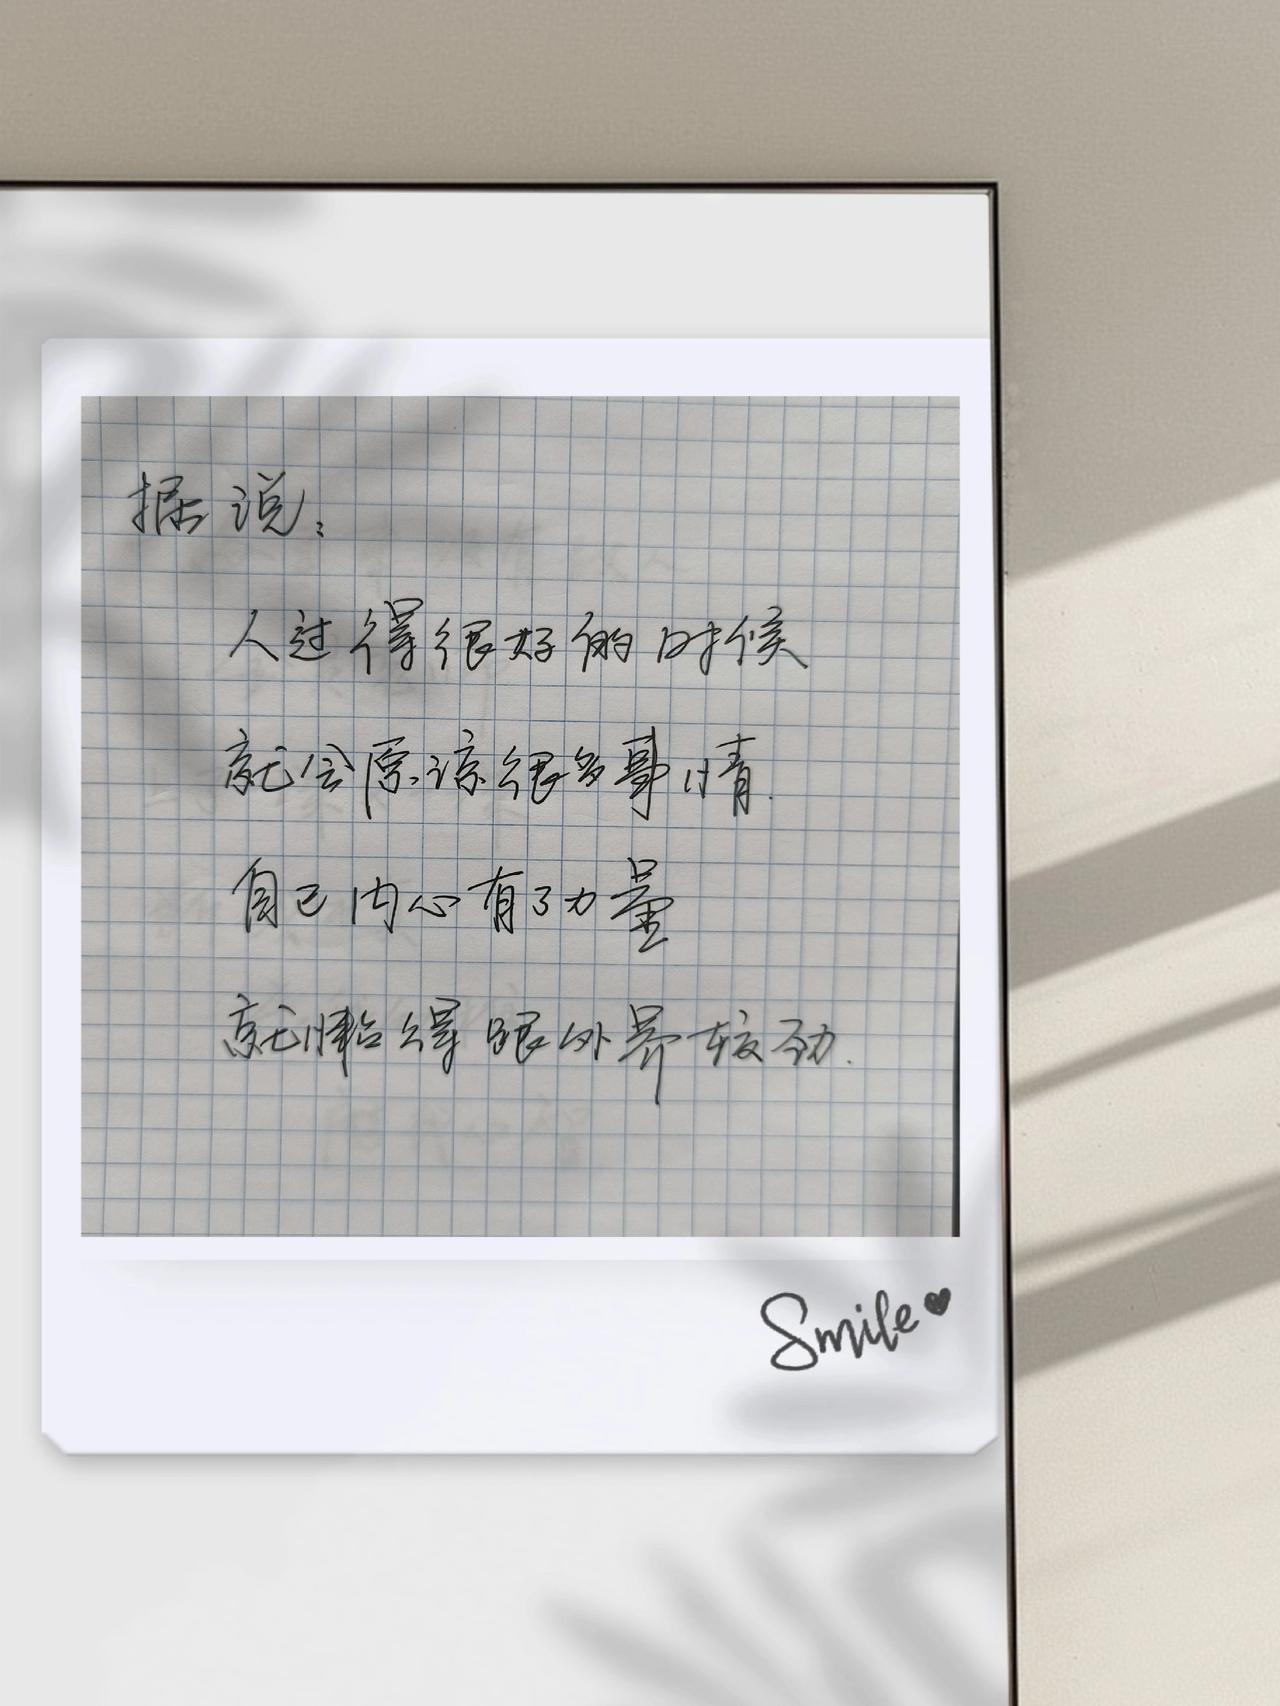 据说:
人过得很好的时候
就会原谅很多事情.
自己内心有了力量
就懒得跟外界较劲.
Smile